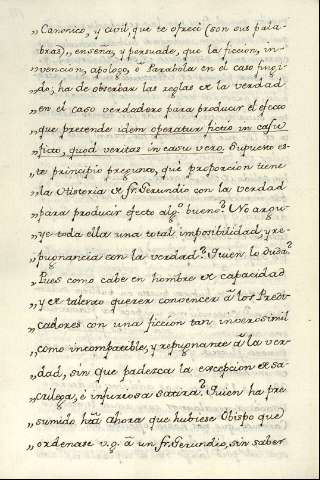 „Canonico, y civil que te ofreci (son sus pala-
„bras), enseña, y persuade, que la ficcion, in-
„vencion, apologo, ò Parabola en el caso fingi-
„do, ha de observar las reglas de la verdad
„en el caso verdadero para producir el efecto
„que pretende idem operatur fictio in casu
„ficto, quod veritas in casu vero. Supuesto es-
„te principio pregunto, què proporcion tiene
„la Historia de fr. Gerundio con la verdad
„para producir efecto algº. bueno? No argu-
„ye toda ella una total imposibilidad, y re-
„pugnancia con la verdad? Quien lo duda?
„Pues como cabe en hombre de capacidad
„y de talento querer convencer à los Predi-
„cadores con una ficcion tan inverosimil
„como incompatible, y repugnante à la ver-
„dad, sin que padesca la excepcion de sa-
„crilega, è injuriosa satira? Quien ha pre-
„sumido htã ahora que hubiese Obispo que
„ordenase v.g. à un fr. Gerundio, sin saber